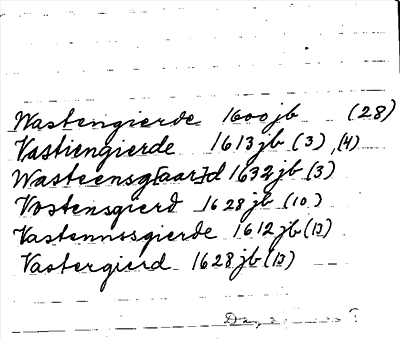 Wastengierde 1600 jb (28)
Vastiengierde 1613 jb (3), (4)
Wasteensg[aar]d 1632 jb (3)
Vostensgierd 1628 jb (10)
Vastennssgierde 1612 jb (13)
Vastergierd 1628 jb (13)